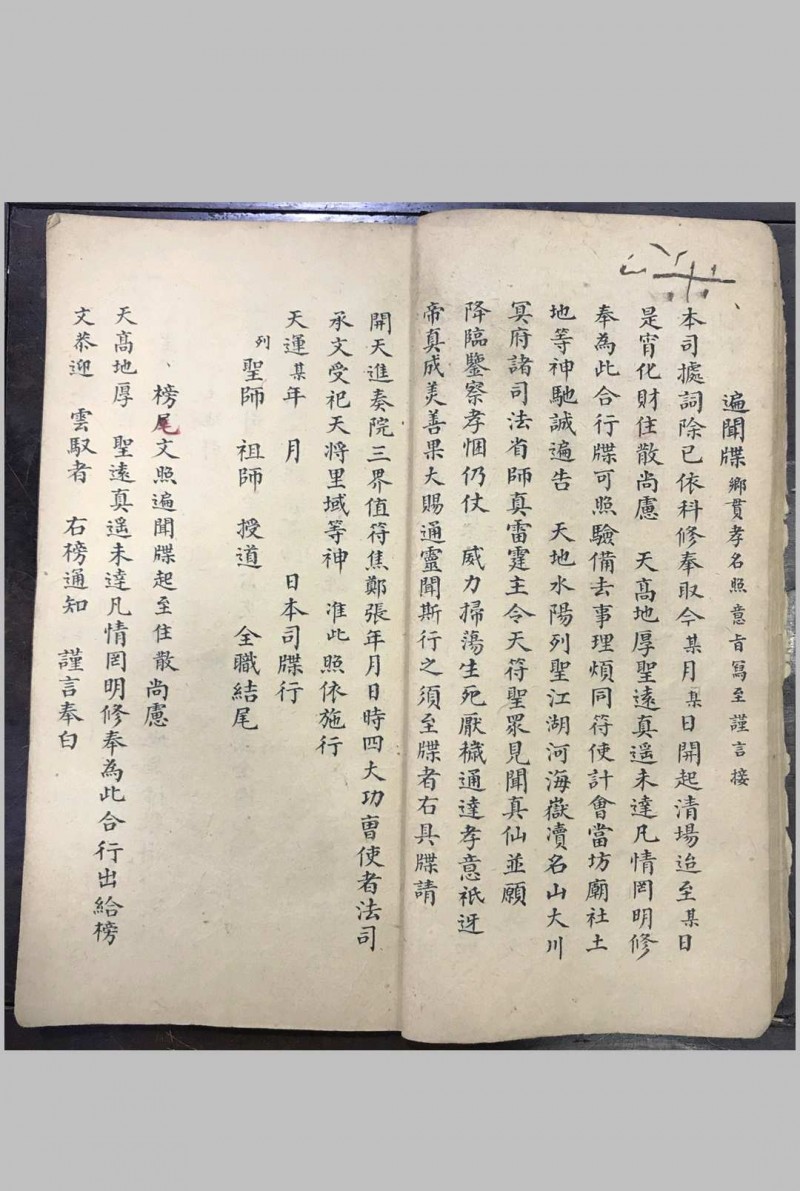 遍聞牒鄉貫孝名照意旨寫至謹言接
本司據詞除已依科修奉取今某月某日開起清場迨至某日
是宵化財住散尚慮 天高地厚聖遠真遥未達凡情罔明修
奉為此合行牒可照驗備去事理煩同符使計會當坊廟社土
地等神馳誠遍告 天地水陽列聖江湖河海嶽瀆名山大川
冥府諸司法省師真雷霆主令天符聖眾見聞真仙並願
降臨鑒察孝悃仍仗 威力掃蕩生死厭穢通達孝意祇迓
帝真成美善果大賜通靈聞斯行之須至牒者右具牒請
開天進奏院三界值符焦鄭張年月日時四大功曹使者法司
承文受祀天将里域等神 准此照依施行
天運某年 月 日本司牒行
列聖師 祖師 授道 全職結尾
榜尾文照遍聞牒起至住散尚慮
天髙地厚 聖遠真遥未達凡情罔明修奉為此合行出給榜
文恭迎 雲馭者 右榜通知 謹言奉白